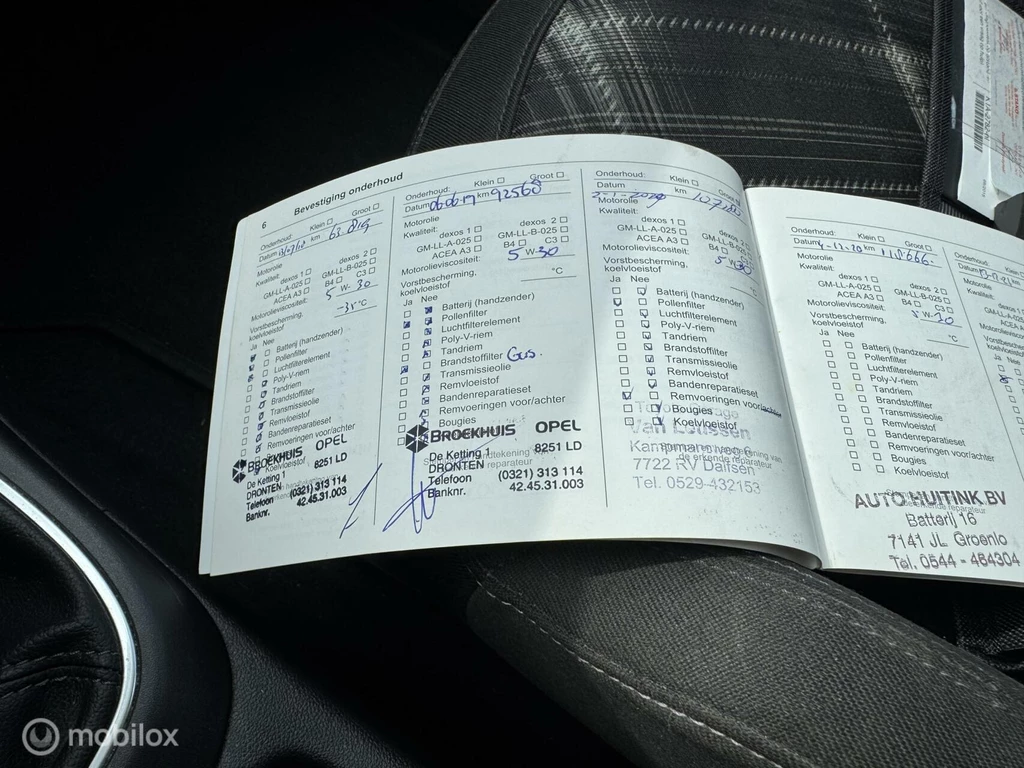 6 Bevestiging onderhoud
Onderhoud: Klein Groot
Datum km 63.819
Motorolie
Kwaliteit: dexos 1 dexos 2
GM-LL-A-025 GM-LL-B-025
ACEA A3 B4 C3
Motorolieviscositeit: 5 W- 30
Vorstbescherming, koelvloeistof -35 °C
Ja Nee
Batterij (handzender)
Pollenfilter
Luchtfilterelement
Poly-V-riem
Tandriem
Brandstoffilter
Transmissieolie
Remvloeistof
Bandenreparatieset
Remvoeringen voor/achter
Koelvloeistof
BROEKHUIS OPEL
De Ketting 1 8251 LD
DRONTEN
Telefoon (0321) 313 114
Banknr. 42.45.31.003
Onderhoud: Klein Groot
Datum 06-06-17 km 92560
Motorolie
Kwaliteit: dexos 1 dexos 2
GM-LL-A-025 GM-LL-B-025
ACEA A3 B4 C3
Motorolieviscositeit: 5 W-30
Vorstbescherming, koelvloeistof °C
Ja Nee
Batterij (handzender)
Pollenfilter
Luchtfilterelement
Poly-V-riem
Tandriem
Brandstoffilter Gas.
Transmissieolie
Remvloeistof
Bandenreparatieset
Remvoeringen voor/achter
Bougies
BROEKHUIS OPEL
De Ketting 1 8251 LD
DRONTEN
Telefoon (0321) 313 114
Banknr. 42.45.31.003
Onderhoud: Klein Groot
Datum km
Motorolie
Kwaliteit: dexos 1 dexos 2
GM-LL-A-025 GM-LL-B-025
ACEA A3 B4 C3
Motorolieviscositeit: 5 W-30
Vorstbescherming, koelvloeistof °C
Ja Nee
Batterij (handzender)
Pollenfilter
Luchtfilterelement
Poly-V-riem
Tandriem
Brandstoffilter
Transmissieolie
Remvloeistof
Bandenreparatieset
Remvoeringen voor/achter
Bougies
Koelvloeistof
Van
7722 RV Dalfsen
de erkende reparateur
Tel. 0529-432153
Onderhoud: Klein Groot
Datum km
Motorolie
Kwaliteit: dexos 1 dexos 2
GM-LL-A-025 GM-LL-B-025
ACEA A3 B4 C3
Motorolieviscositeit: 5 W-30
Vorstbescherming, koelvloeistof °C
Ja Nee
Batterij (handzender)
Pollenfilter
Luchtfilterelement
Poly-V-riem
Tandriem
Brandstoffilter
Transmissieolie
Remvloeistof
Bandenreparatieset
Remvoeringen voor/achter
Bougies
Koelvloeistof
AUTO HUITINK BV
Batterij 16
7141 JL Groenlo
Tel. 0544 - 464304
mobilox